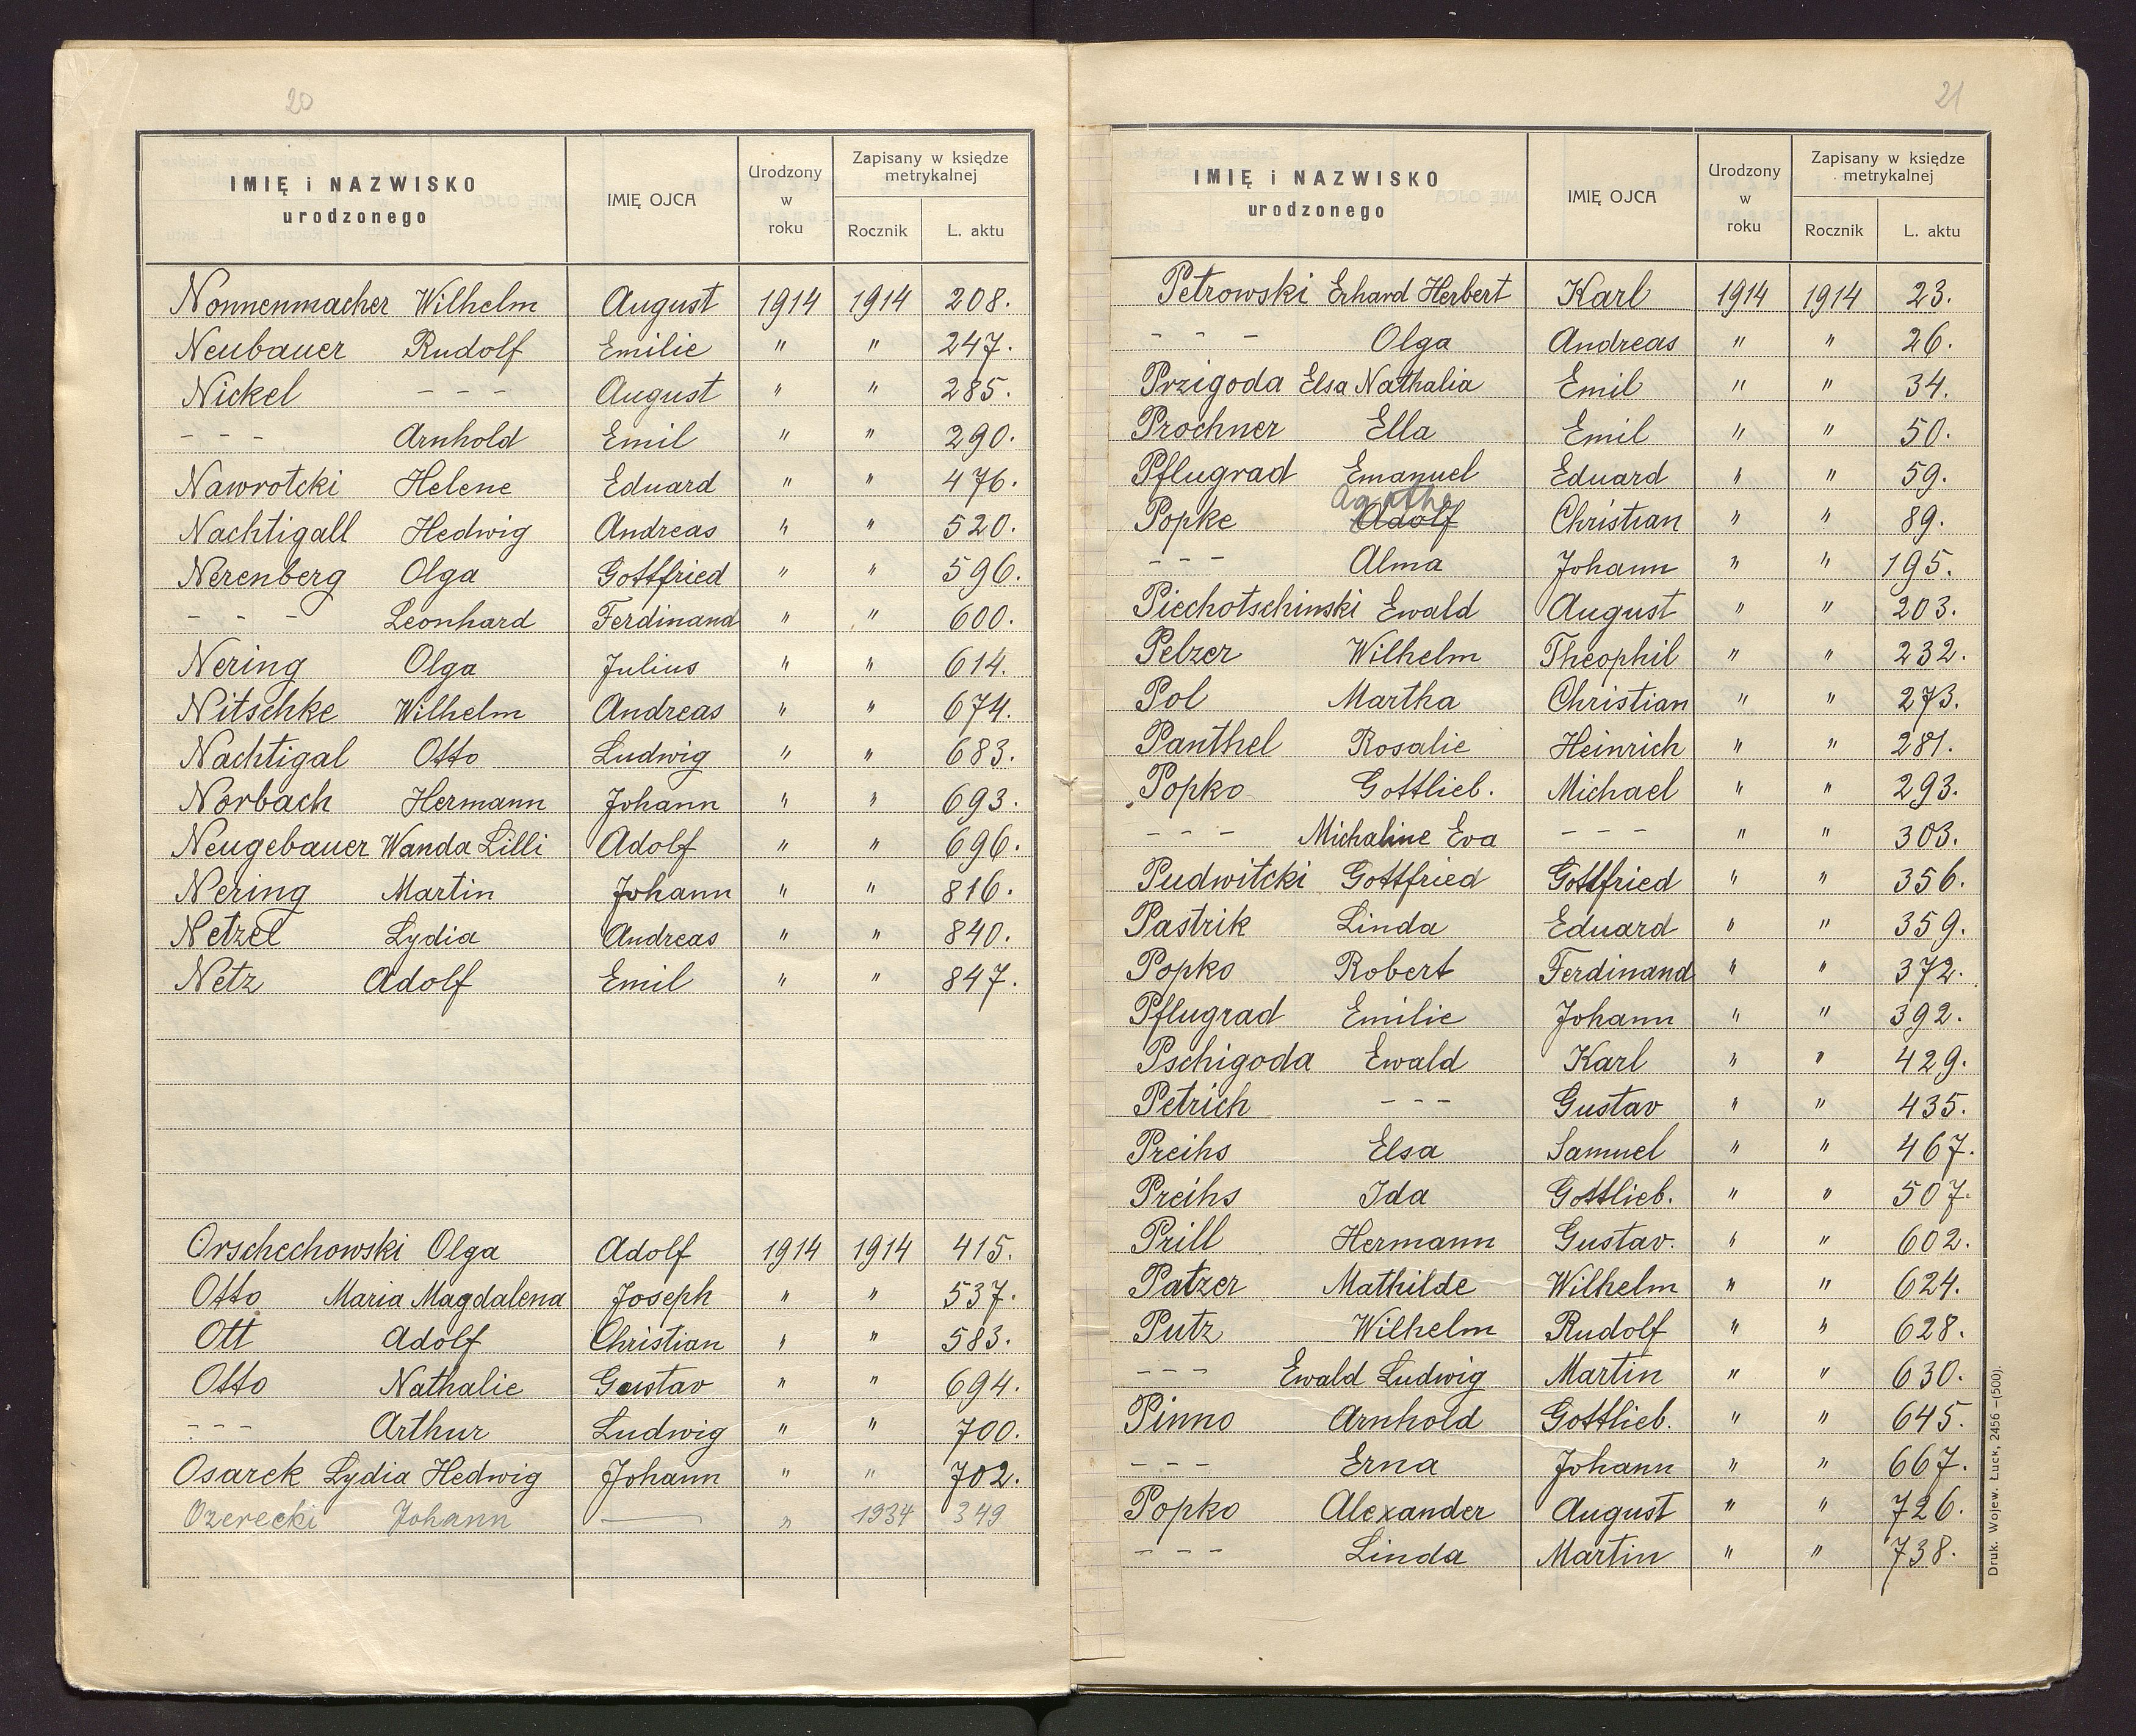 20
IMIĘ i NAZWISKO
urodzonego
IMIĘ OJCA
Urodzony
w
roku
Zapisany w księdze
metrykalnej
Rocznik
L. aktu
Nonnenmacher Wilhelm August 1914 1914 208.
Neubauer Rudolf Emilie " " 247.
Nickel - - - August " " 285.
- - - Arnhold Emil " " 290.
Nawrotcki Helene Eduard " " 476.
Nachtigall Hedwig Andreas " " 520.
Nerenberg Olga Gottfried " " 596.
- - - Leonhard Ferdinand " " 600.
Nering Olga Julius " " 614.
Nitschke Wilhelm Andreas " " 674.
Nachtigal Otto Ludwig " " 683.
Norbach Hermann Johann " " 693.
Neugebauer Wanda Lilli Adolf " " 696.
Nering Martin Johann " " 816.
Netzel Lydia Andreas " " 840.
Netz Adolf Emil " " 847.
Orschechowski Olga Adolf 1914 1914 415.
Otto Maria Magdalena Joseph " " 537.
Ott Adolf Christian " " 583.
Otto Nathalie Gustav " " 694.
- - - Arthur Ludwig " " 700.
Osarek Lydia Hedwig Johann " " 702.
Ozerecki Johann — " 1934 349
21
IMIĘ i NAZWISKO
urodzonego
IMIĘ OJCA
Urodzony
w
roku
Zapisany w księdze
metrykalnej
Rocznik
L. aktu
Petrowski Erhard Herbert Karl 1914 1914 23.
- - - Olga Andreas " " 26.
Przigoda Elsa Nathalia Emil " " 34.
Prochner Ella Emil " " 50.
Pflugrad Emanuel Eduard " " 59.
Agathe
Popke Adolf Christian " " 89.
- - - Alma Johann " " 195.
Piechotschinski Ewald August " " 203.
Pelzer Wilhelm Theophil " " 232.
Pol Martha Christian " " 273.
Panthel Rosalie Heinrich " " 281.
Popko Gottlieb. Michael " " 293.
- - - Michaline Eva - - - " " 303.
Pudwitcki Gottfried Gottfried " " 356.
Pastrik Linda Eduard " " 359.
Popko Robert Ferdinand " " 372.
Pflugrad Emilie Johann " " 392.
Pschigoda Ewald Karl " " 429.
Petrich - - - Gustav " " 435.
Preihs Elsa Samuel " " 467.
Preihs Ida Gottlieb. " " 507.
Prill Hermann Gustav. " " 602.
Patzer Mathilde Wilhelm " " 624.
Putz Wilhelm Rudolf " " 628.
- - - Ewald Ludwig Martin " " 630.
Pinno Arnhold Gottlieb. " " 645.
- - - Erna Johann " " 667.
Popko Alexander August " " 726.
- - - Linda Martin " " 738.
Druk. Wojew. Łuck, 2456 — (500).